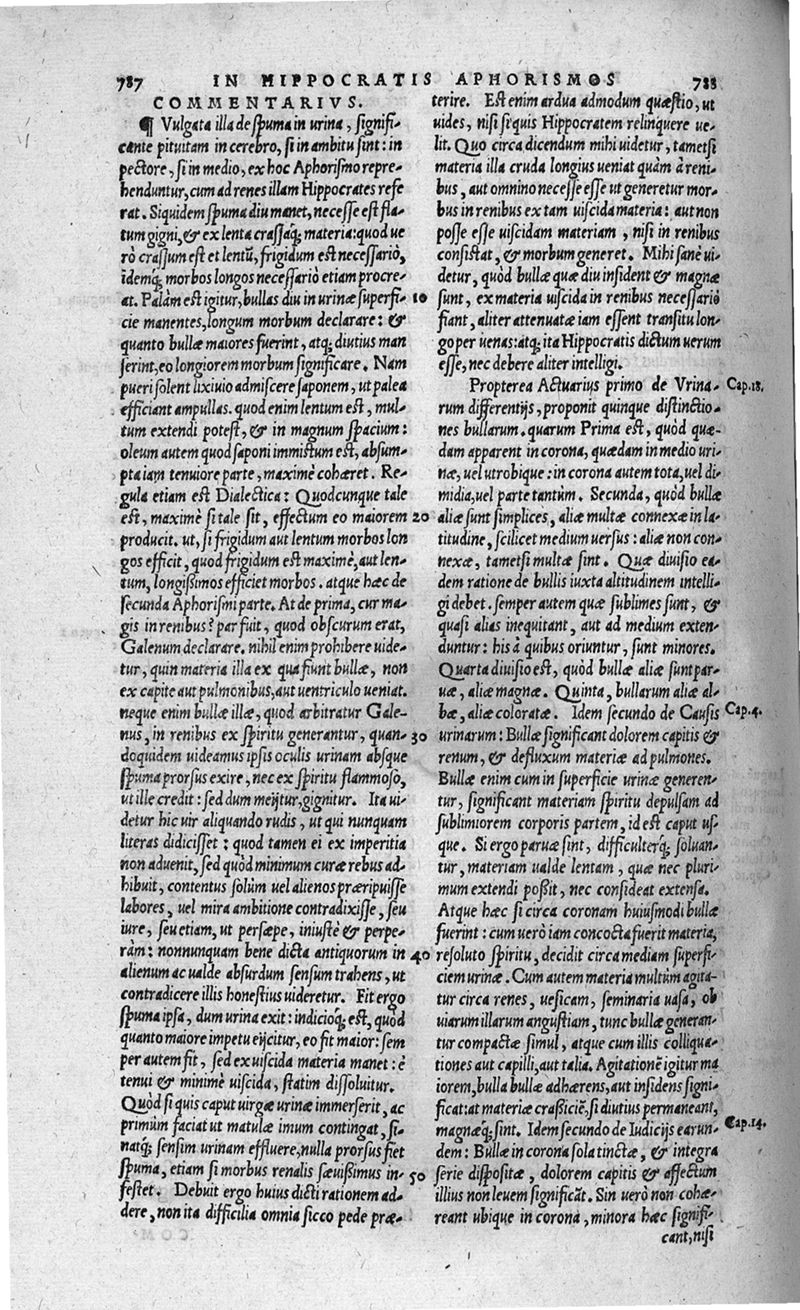 787 IN HIPPOCRATIS APHORISMOS 788
COMMENTARIVS.
¶ Vulgata illa de spuma in urina, signifi-
cante pituitam in cerebro, si in ambitu sint: in
pectore, si in medio, ex hoc Aphorismo repre-
henduntur, cum ad renes illam Hippocrates refe
rat. Siquidem spuma diu manet, necesse est fla-
tum gigni, & ex lenta crassaq́; materia: quod ue
rò crassum est et lentũ, frigidum est necessariò,
idemq́; morbos longos necessariò etiam procre-
at. Palàm est igitur, bullas diu in urinæ superfi- 10
cie manentes, longum morbum declarare: &
quanto bullæ maiores fuerint, atq; diutius man
serint, eo longiorem morbum significare. Nam
pueri solent lixiuio admiscere saponem, ut palea
efficiant ampullas. quod enim lentum est, mul-
tum extendi potest, & in magnum spacium:
oleum autem quod saponi immistum est, absum-
pta iam tenuiore parte, maximè cohæret. Re-
gula etiam est Dialectica: Quodcunque tale
est, maximè si tale sit, effectum eo maiorem 20
producit. ut, si frigidum aut lentum morbos lon
gos efficit, quod frigidum est maximè, aut len-
tum, longißimos efficiet morbos. atque hæc de
secunda Aphorismi parte. At de prima, cur ma-
gis in renibus? par fuit, quod obscurum erat,
Galenum declarare. nihil enim prohibere uide-
tur, quin materia illa ex qua fiunt bullæ, non
ex capite aut pulmonibus, aut uentriculo ueniat.
neque enim bullæ illæ, quod arbitratur Gale-
nus, in renibus ex spiritu generantur, quan- 30
doquidem uideamus ipsis oculis urinam absque
spuma prorsus exire, nec ex spiritu flammoso,
ut ille credit: sed dum meijtur, gignitur. Ita ui-
detur hic uir aliquando rudis, ut qui nunquam
literas didicisset: quod tamen ei ex imperitia
non aduenit, sed quòd minimum curæ rebus ad-
hibuit, contentus solùm uel alienos præripuisse
labores, uel mira ambitione contradixisse, seu
iure, seu etiam, ut persæpe, iniustè & perpe-
ràm: nonnunquam bene dicta antiquorum in 40
alienum ac ualde absurdum sensum trahens, ut
contradicere illis honestius uideretur. Fit ergo
spuma ipsa, dum urina exit: indicioq́; est, quòd
quanto maiore impetu eijcitur, eo fit maior: sem
per autem fit, sed ex uiscida materia manet: è
tenui & minimè uiscida, statim dissoluitur.
Quòd si quis caput uirgæ urinæ immerserit, ac
primùm faciat ut matulæ imum contingat, si-
natq́; sensim urinam effluere, nulla prorsus fiet
spuma, etiam si morbus renalis sæuißimus in- 50
festet. Debuit ergo huius dicti rationem ad-
dere, non ita difficilia omnia sicco pede præ-
terire. Est enim ardua admodum quæstio, ut
uides, nisi si quis Hippocratem relinquere ue-
lit. Quo circa dicendum mihi uidetur, tametsi
materia illa cruda longius ueniat quàm à reni-
bus, aut omnino necesse esse ut generetur mor-
bus in renibus ex tam uiscida materia: aut non
posse esse uiscidam materiam, nisi in renibus
consistat, & morbum generet. Mihi sanè ui-
detur, quòd bullæ quæ diu insident & magnæ
sunt, ex materia uiscida in renibus necessariò
fiant, aliter attenuatæ iam essent transitu lon-
go per uenas: atq; ita Hippocratis dictum uerum
esse, nec debere aliter intelligi.
Propterea Actuarijs primo de Vrina- Cap.18.
rum differentijs, proponit quinque distinctio-
nes bullarum. quarum Prima est, quòd quæ-
dam apparent in corona, quædam in medio uri-
næ, uel utrobique: in corona autem tota, uel di-
midia, uel parte tantùm. Secunda, quòd bullæ
aliæ sunt simplices, aliæ multæ connexæ in la-
titudine, scilicet medium uersus: aliæ non con-
nexæ, tametsi multæ sint. Quæ diuisio ea-
dem ratione de bullis iuxta altitudinem intelli-
gi debet. semper autem quæ sublimes sunt, &
quasi alias inequitant, aut ad medium exten-
duntur: his à quibus oriuntur, sunt minores.
Quarta diuisio est, quòd bullæ aliæ sunt par-
uæ, aliæ magnæ. Quinta, bullarum aliæ al-
bæ, aliæ coloratæ. Idem secundo de Causis Cap.4.
urinarum: Bullæ significant dolorem capitis &
renum, & defluxum materiæ ad pulmones.
Bullæ enim cum in superficie urinæ generen-
tur, significant materiam spiritu depulsam ad
sublimiorem corporis partem, id est caput us-
que. Si ergo paruæ sint, difficulterq́; soluan-
tur, materiam ualde lentam, quæ nec pluri-
mum extendi poßit, nec consideat extensa.
Atque hæc si circa coronam huiusmodi bullæ
fuerint: cum uerò iam concocta fuerit materia,
resoluto spiritu, decidit circa mediam superfi-
ciem urinæ. Cum autem materia multùm agita-
tur circa renes, uesicam, seminaria uasa, ob
uiarum illarum angustiam, tunc bullæ generan-
tur compactæ simul, atque cum illis colliqua-
tiones aut capilli, aut talia. Agitationẽ igitur ma
iorem, bulla bullæ adhærens, aut insidens signi-
ficat: at materiæ craßiciẽ, si diutius permaneant,
magnæq́; sint. Idem secundo de Iudicijs earun- Cap.14.
dem: Bullæ in corona sola tinctæ, & integra
serie dispositæ, dolorem capitis & affectum
illius non leuem significãt. Sin uerò non cohæ-
reant ubique in corona, minora hæc signifi-
cant, nisi